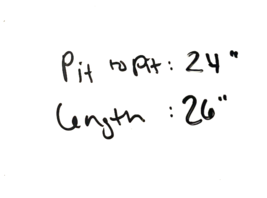 Pit to Pit: 24"
Length : 26"